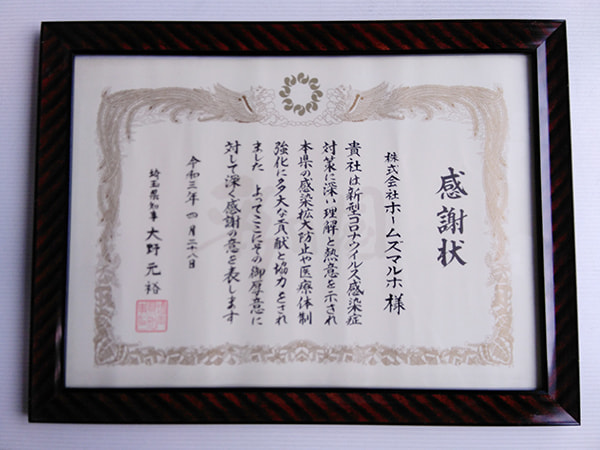 感謝状
株式会社ホームズマルホ 様
貴社は新型コロナウイルス感染症
対策に深い理解と熱意を示され
本県の感染拡大防止や医療体制
強化に多大な貢献と協力をされ
ました よってここにその御厚意に
対して深く感謝の意を表します
令和三年四月二八日
埼玉県知事 大野元裕